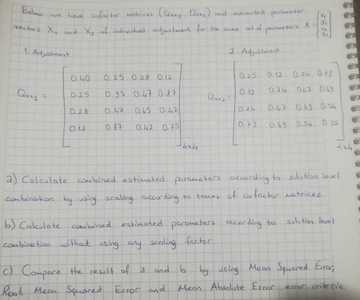 Below we have cofactor matrices (Qxx1, Qxx2) and estimated parameter
vectors X1 and X2 of individual adjustment for the same set of parameters X =
1. Adjustment
2. Adjustment
Qxx1 =
0.40 0.25 0.28 0.12
0.25 0.47 0.87
0.28 0.47 0.65 0.42
0.12 0.87 0.42 0.75
4x4
Qxx2 =
0.25 0.12 0.24 0.73
0.12 0.63
0.24 0.54
0.73 0.54
4x4
a) Calculate combined estimated parameters according to solution level
combination by using scaling according to traces of cofactor matrices.
b) Calculate combined estimated parameters according to solution level
combination without using any scaling factor.
c) Compare the result of a and b by using Mean Squared Error,
Root Mean Squared Error and Mean Absolute Error error criteria.